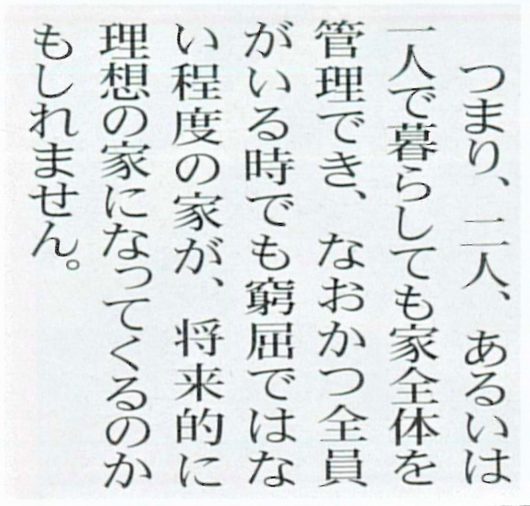 つまり、二人、あるいは
一人で暮らしても家全体を
管理でき、なおかつ全員
がいる時でも窮屈ではな
い程度の家が、将来的に
理想の家になってくるのか
もしれません。